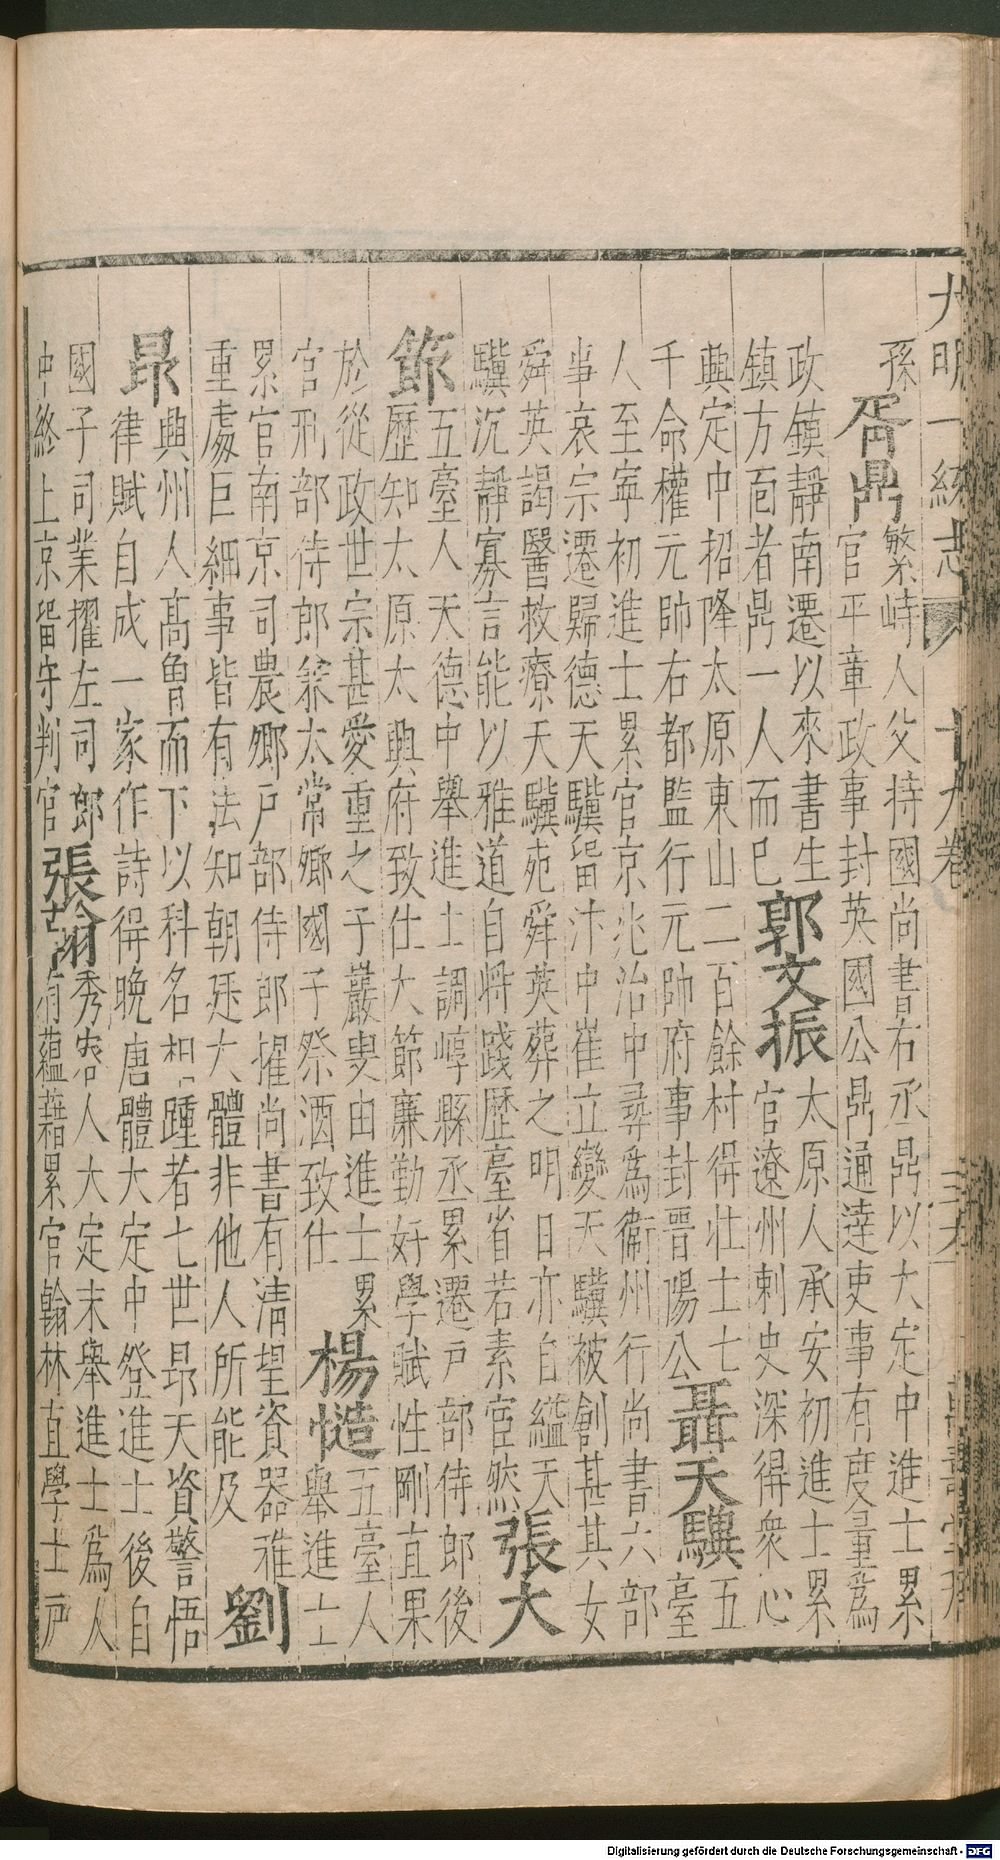 大明一統志 十九卷 三九 萬壽堂刊
孫
胥鼎
繁峙人父持國尚書右丞鼎以大定中進士累
官平章政事封英國公鼎通達吏事有度量為
政鎮靜南遷以來書生
鎮方面者鼎一人而巳
郭文振
太原人承安初進士累
官遼州剌史深得衆心
興定中招降太原東山二百餘村得壯士七
千命權元帥右都監行元帥府事封晉陽公
聶天驥
五
臺
人至寧初進士累官京兆治中尋為衞州行尚書六部
事哀宗遷歸德天驥留汴中崔立變天驥被創甚其女
舜英謁醫救療天驥死舜英葬之明日亦自縊天
驥沉靜寡言能以雅道自將踐歷臺省若素宦然
張大
節
五臺人天德中舉進士調崞縣丞累遷戸部侍郎後
歷知太原太興府致仕大節廉勤好學賦性剛直果
於從政世宗甚愛重之子巖叟由進士累
官刑部侍郎兼太常卿國子祭酒致仕
楊慥
五臺人
舉進士
累官南京司農卿戸部侍郎擢尚書有清望資器雅
重處巨細事皆有法知朝廷大體非他人所能及
劉
昂
興州人高曾而下以科名相踵者七世昂天資警悟
律賦自成一家作詩得晚唐體大定中登進士後自
國子司業擢左司郎
中終上京留守判官
張翰
秀容人大定末舉進士為人
有蘊藉累官翰林直學士戸
Digitalisierung gefördert durch die Deutsche Forschungsgemeinschaft - DFG